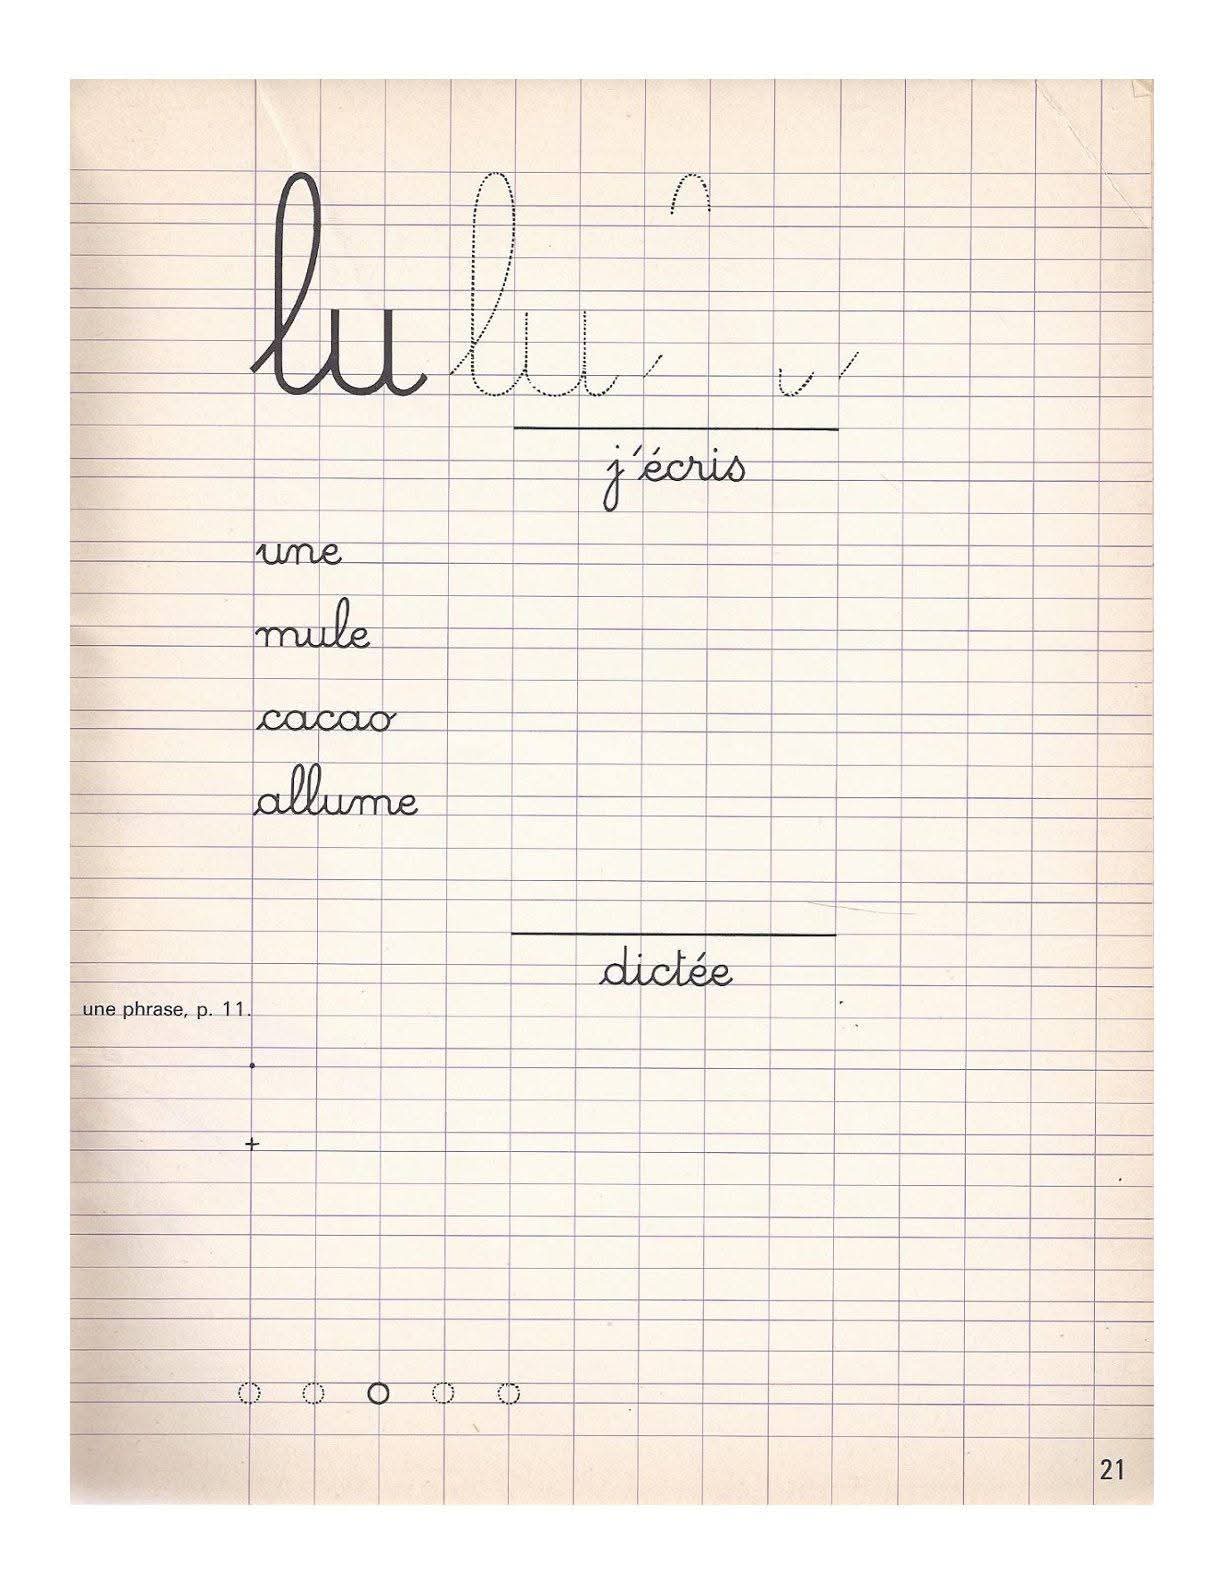 lu lu
j'écris
une
mule
cacao
allume
dictée
une phrase, p. 11.
21